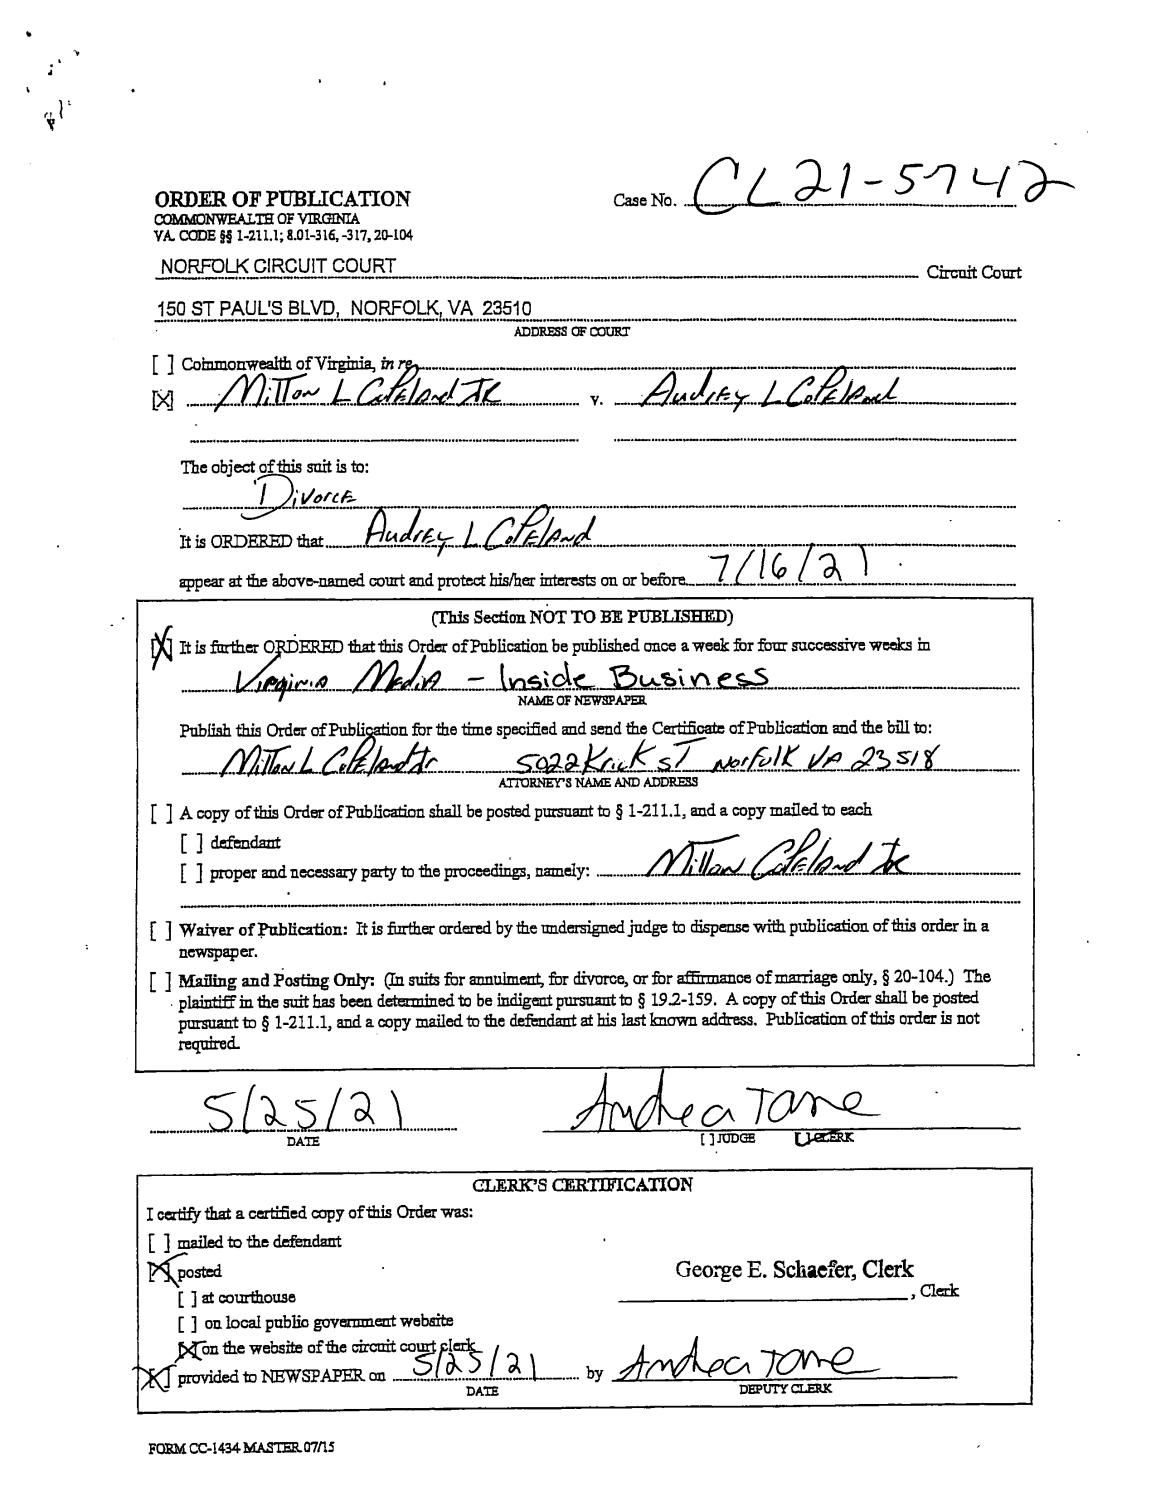 ORDER OF PUBLICATION
Case No. CL21-5742
COMMONWEALTH OF VIRGINIA
VA. CODE §§ 1-211.1; 8.01-316, -317, 20-104
NORFOLK CIRCUIT COURT Circuit Court
150 ST PAUL'S BLVD, NORFOLK, VA 23510
ADDRESS OF COURT
[ ] Commonwealth of Virginia, in re
[X] Milton L Copeland JR v. Audrey L Copeland
The object of this suit is to:
Divorce
It is ORDERED that Audrey L Copeland
appear at the above-named court and protect his/her interests on or before 7/16/21
(This Section NOT TO BE PUBLISHED)
[X] It is further ORDERED that this Order of Publication be published once a week for four successive weeks in
Virginia Media - Inside Business
NAME OF NEWSPAPER
Publish this Order of Publication for the time specified and send the Certificate of Publication and the bill to:
Milton L Copeland Jr 5922 Krick ST Norfolk VA 23518
ATTORNEY'S NAME AND ADDRESS
[ ] A copy of this Order of Publication shall be posted pursuant to § 1-211.1, and a copy mailed to each
[ ] defendant
[ ] proper and necessary party to the proceedings, namely: Milton Copeland Jr
[ ] Waiver of Publication: It is further ordered by the undersigned judge to dispense with publication of this order in a
newspaper.
[ ] Mailing and Posting Only: (In suits for annulment, for divorce, or for affirmance of marriage only, § 20-104.) The
plaintiff in the suit has been determined to be indigent pursuant to § 19.2-159. A copy of this Order shall be posted
pursuant to § 1-211.1, and a copy mailed to the defendant at his last known address. Publication of this order is not
required.
5/25/21 Andrea Tane
DATE [ ] JUDGE [ ] CLERK
CLERK'S CERTIFICATION
I certify that a certified copy of this Order was:
[ ] mailed to the defendant
[X] posted
George E. Schaefer, Clerk
[ ] at courthouse
, Clerk
[ ] on local public government website
[X] on the website of the circuit court clerk
[X] provided to NEWSPAPER on 5/25/21 by Andrea Tane
DATE DEPUTY CLERK
FORM CC-1434 MASTER 07/15